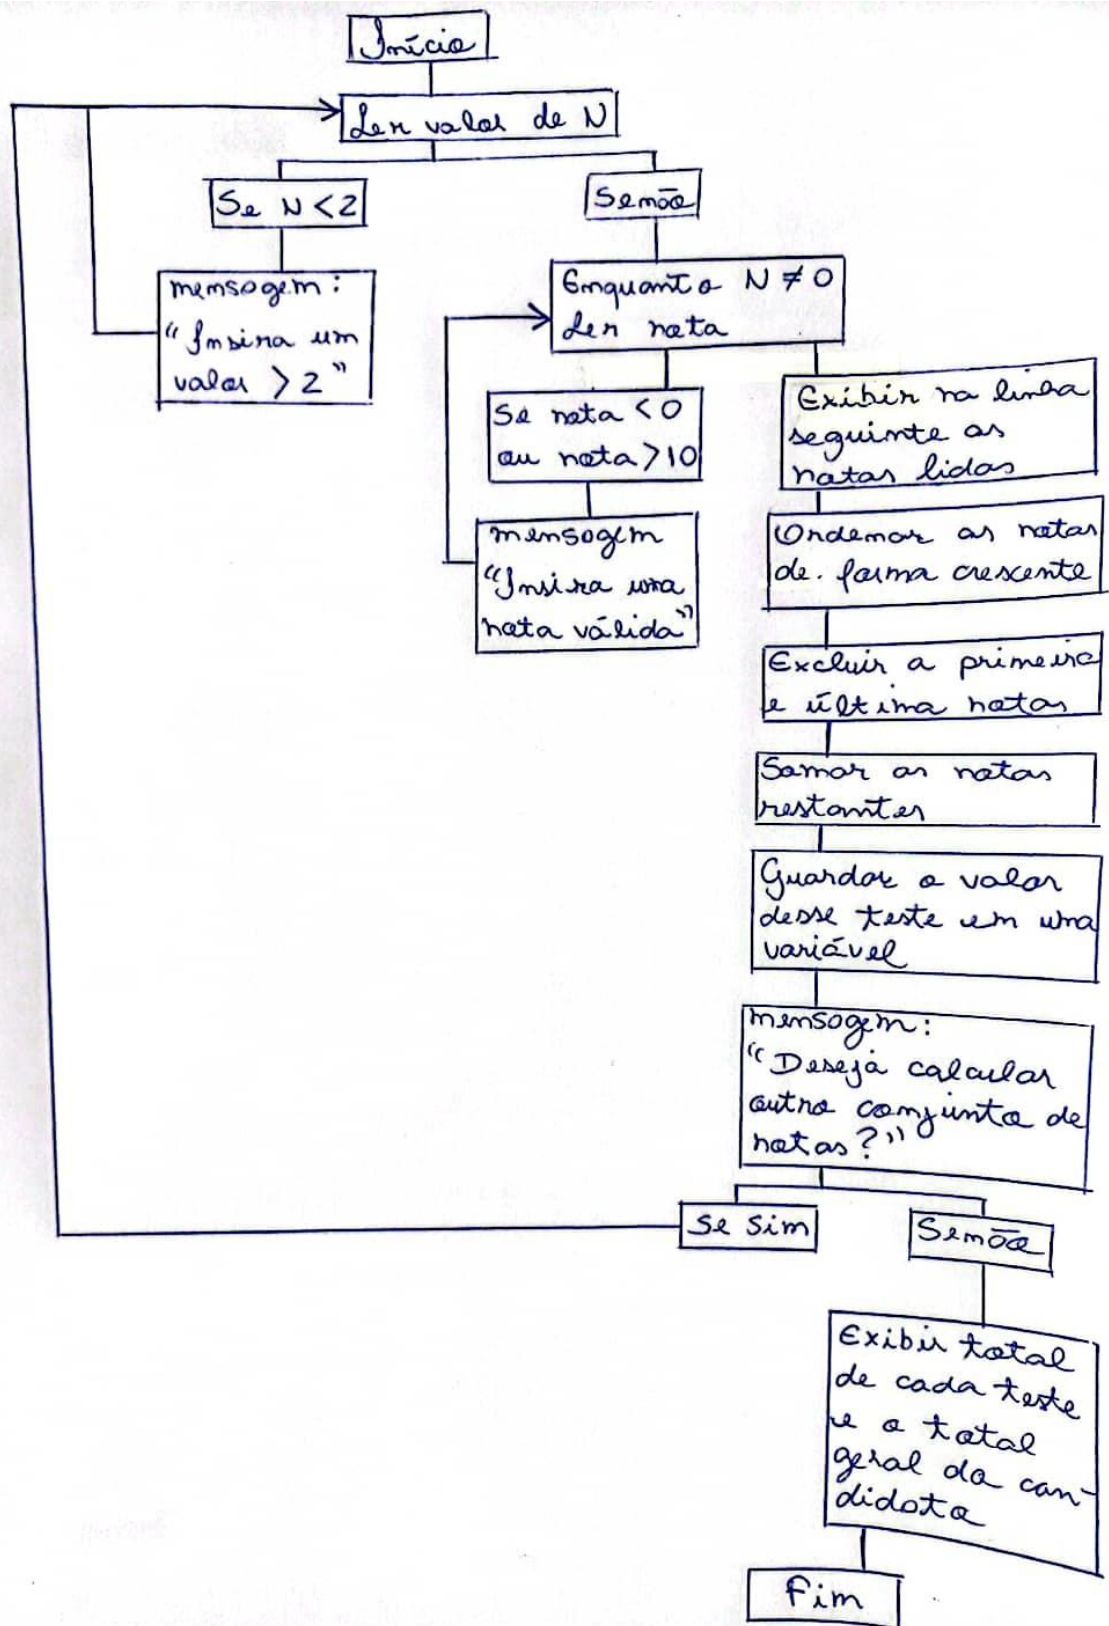 Início
Ler valor de N
Se N < 2
Senão
mensagem:
"Insira um
valor > 2"
Enquanto N ≠ 0
Ler nota
Se nota < 0
ou nota > 10
mensagem
"Insira uma
nota válida"
Exibir na linha
seguinte as
notas lidas
Ordenar as notas
de. forma crescente
Excluir a primeira
e última notas
Somar as notas
restantes
Guardar o valor
desse teste em uma
variável
mensagem:
"Deseja calcular
outro conjunto de
notas?"
Se Sim
Senão
Exibir total
de cada teste
e o total
geral do can-
didato
Fim